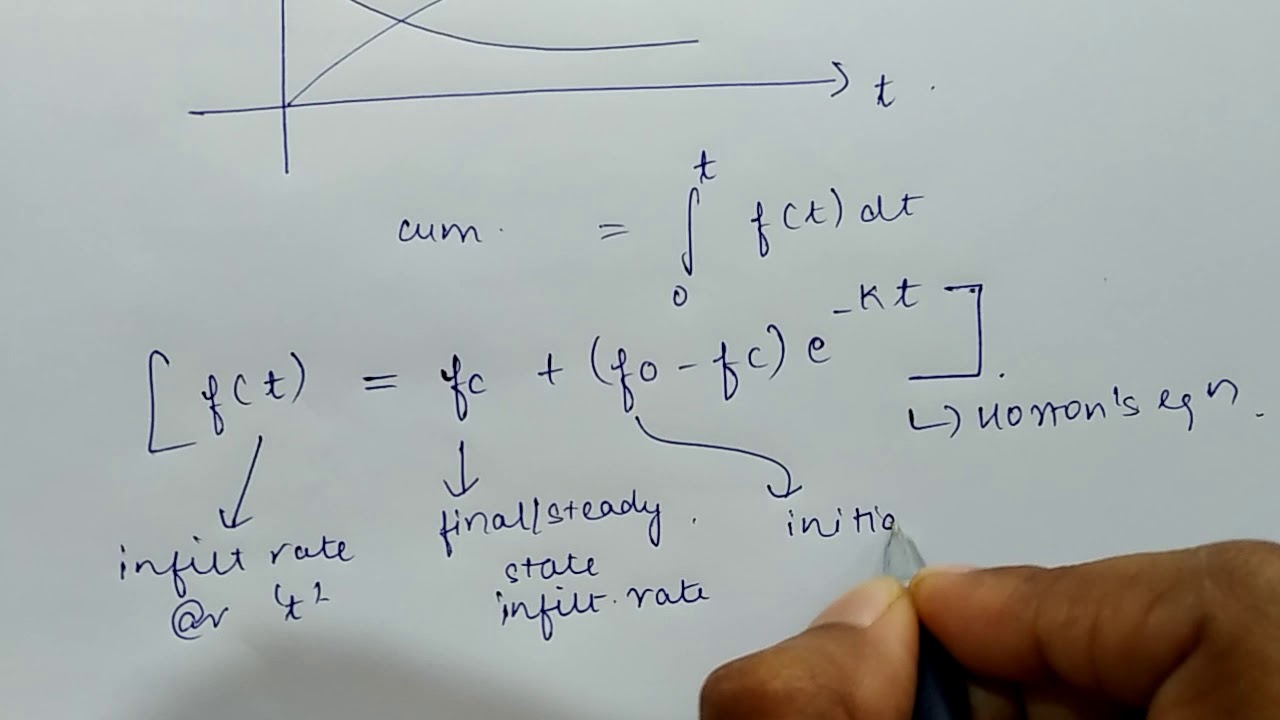 t
cum. = ∫₀ᵗ f(t) dt
[f(t) = fc + (fo - fc) e^-Kt]
↳ Horton's eqn.
infilt rate
@r 't'
final/steady
state
infilt. rate
initia